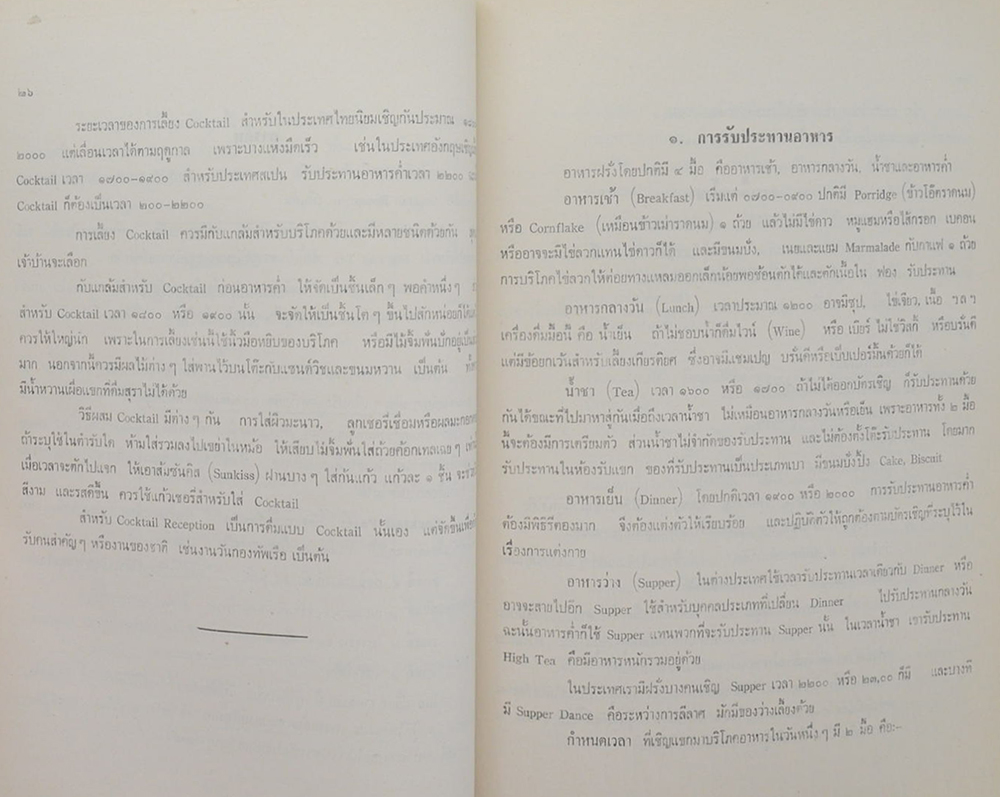 ๒๖
ระยะเวลาของการเลี้ยง Cocktail สำหรับในประเทศไทยนิยมเชิญกันประมาณ
๒๐๐๐ แต่เลื่อนเวลาได้ตามฤดูกาล เพราะบางแห่งมืดเร็ว เช่นในประเทศอังกฤษเชิญ
Cocktail เวลา ๑๗๐๐-๑๙๐๐ สำหรับประเทศสเปน รับประทานอาหารค่ำเวลา ๒๒๐๐
Cocktail ก็ต้องเป็นเวลา ๒๐๐-๒๒๐๐
การเลี้ยง Cocktail ควรมีกับแกล้มสำหรับบริโภคด้วยและมีหลายชนิดด้วยกัน
เจ้าบ้านจะเลือก
กับแกล้มสำหรับ Cocktail ก่อนอาหารค่ำ ให้จัดเป็นชิ้นเล็กๆ พอคำหนึ่งๆ
สำหรับ Cocktail เวลา ๑๘๐๐ หรือ ๑๙๐๐ นั้น จะจัดให้เป็นชิ้นโตๆ ขึ้นไปสักหน่อยก็ได้
ควรให้ใหญ่นัก เพราะในการเลี้ยงเช่นนี้ใช้นิ้วมือหยิบของบริโภค หรือมีไม้จิ้มฟันปักอยู่
มาก นอกจากนี้ควรมีผลไม้ต่างๆ ใส่พานไว้บนโต๊ะกับแซนด์วิชและขนมหวาน เป็นต้น
มีน้ำหวานเผื่อแขกที่ดื่มสุราไม่ได้ด้วย
วิธีผสม Cocktail มีต่างๆ กัน การใส่ผิวมะนาว, ลูกเชอรี่เชื่อมหรือผลมะกอก
ถ้าระบุใช้ในตำรับใด ห้ามใส่รวมลงไปเขย่าในหม้อ ให้เสียบไม้จิ้มฟันใส่ถ้วยค๊อกเทลเฉยๆ
เมื่อเวลาจะตักไปแจก ให้เอาส้มซันคิส (Sunkiss) ฝานบางๆ ใส่ก้นแก้ว แก้วละ ๑ ชิ้น
สีงาม และรสดีขึ้น ควรใช้แก้วเชอรี่สำหรับใส่ Cocktail
สำหรับ Cocktail Reception เป็นการดื่มแบบ Cocktail นั้นเอง แต่จัดขึ้นเพื่อ
รับคนสำคัญๆ หรืองานของชาติ เช่นงานวันกองทัพเรือ เป็นต้น
๑. การรับประทานอาหาร
อาหารฝรั่งโดยปกติมี ๔ มื้อ คืออาหารเช้า, อาหารกลางวัน, น้ำชาและอาหารค่ำ
อาหารเช้า (Breakfast) เริ่มแต่ ๐๗๐๐-๐๙๐๐ ปกติมี Porridge (ข้าวโอ๊ตราดนม)
หรือ Cornflake (เหมือนข้าวเม่าราดนม) ๑ ถ้วย แล้วไข่ดาว หมูแฮมหรือไส้กรอก เบคอน
หรืออาจจะมีไข่ลวกแทนไข่ดาวก็ได้ และมีขนมปัง, เนยและแยม Marmalade กับกาแฟ ๑ ถ้วย
การบริโภคไข่ลวกให้ต่อยทางแหลมออกเล็กน้อยพอช้อนตักได้และตักเนื้อใน ฟอง รับประทาน
อาหารกลางวัน (Lunch) เวลาประมาณ ๑๒๐๐ อาจมีซุป, ไข่เจียว, เนื้อ ฯลฯ
เครื่องดื่มมื้อนี้ คือ น้ำเย็น ถ้าไม่ชอบน้ำก็ดื่มไวน์ (Wine) หรือ เบียร์ ไม่ใช่วิสกี้ หรือบรั่นดี
แต่มีข้อยกเว้นสำหรับเลี้ยงเกียรติยศ ซึ่งอาจมีแชมเปญ บรั่นดีหรือเป็บเปอร์มิ้นด้วยก็ได้
น้ำชา (Tea) เวลา ๑๖๐๐ หรือ ๑๗๐๐ ถ้าไม่ได้ออกบัตรเชิญ ก็รับประทานด้วย
กันได้ขณะที่ไปมาหาสู่กันเมื่อถึงเวลาน้ำชา ไม่เหมือนอาหารกลางวันหรือเย็น เพราะอาหารทั้ง ๒ มื้อ
นี้จะต้องมีการเตรียมตัว ส่วนน้ำชาไม่จำกัดของรับประทาน และไม่ต้องตั้งโต๊ะรับประทาน โดยมาก
รับประทานในห้องรับแขก ของที่รับประทานเป็นประเภทเบา มีขนมปังปิ้ง Cake, Biscuit
อาหารเย็น (Dinner) โดยปกติเวลา ๑๙๐๐ หรือ ๒๐๐๐ การรับประทานอาหารค่ำ
ต้องมีพิธีรีตองมาก จึงต้องแต่งตัวให้เรียบร้อย และปฏิบัติตัวให้ถูกต้องตามบัตรเชิญที่ระบุไว้ใน
เรื่องการแต่งกาย
อาหารว่าง (Supper) ในต่างประเทศใช้เวลารับประทานเวลาเดียวกับ Dinner หรือ
อาจจะสายไปอีก Supper ใช้สำหรับบุคคลประเภทที่เปลี่ยน Dinner ไปรับประทานกลางวัน
ฉะนั้นอาหารค่ำก็ใช้ Supper แทนพวกที่จะรับประทาน Supper นั้น ในเวลาน้ำชา เขารับประทาน
High Tea คือมีอาหารหนักรวมอยู่ด้วย
ในประเทศเรามีฝรั่งบางคนเชิญ Supper เวลา ๒๒๐๐ หรือ ๒๓,๐๐ ก็มี และบางที
มี Supper Dance คือระหว่างการลีลาศ มักมีของว่างเลี้ยงด้วย
กำหนดเวลา ที่เชิญแขกมาบริโภคอาหารในวันหนึ่งๆ มี ๒ มื้อ คือ:-